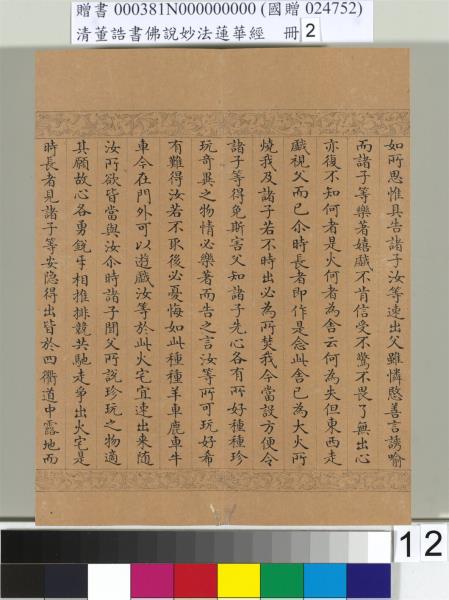 贈書 000381N000000000 (國贈 024752)
清董誥書佛說妙法蓮華經 冊 2
如所思惟具告諸子汝等速出父雖憐愍善言誘喻
而諸子等樂著嬉戲不肯信受不驚不畏了無出心
亦復不知何者是火何者為舍云何為失但東西走
戲視父而已尒時長者即作是念此舍已為大火所
燒我及諸子若不時出必為所焚我今當設方便令
諸子等得免斯害父知諸子先心各有所好種種珍
玩奇異之物情必樂著而告之言汝等所可玩好希
有難得汝若不取後必憂悔如此種種羊車鹿車牛
車今在門外可以遊戲汝等於此火宅宜速出来随
汝所欲皆當與汝尒時諸子聞父所說珍玩之物適
其願故心各勇銳互相推排競共馳走爭出火宅是
時長者見諸子等安隐得出皆於四衢道中露地而
12